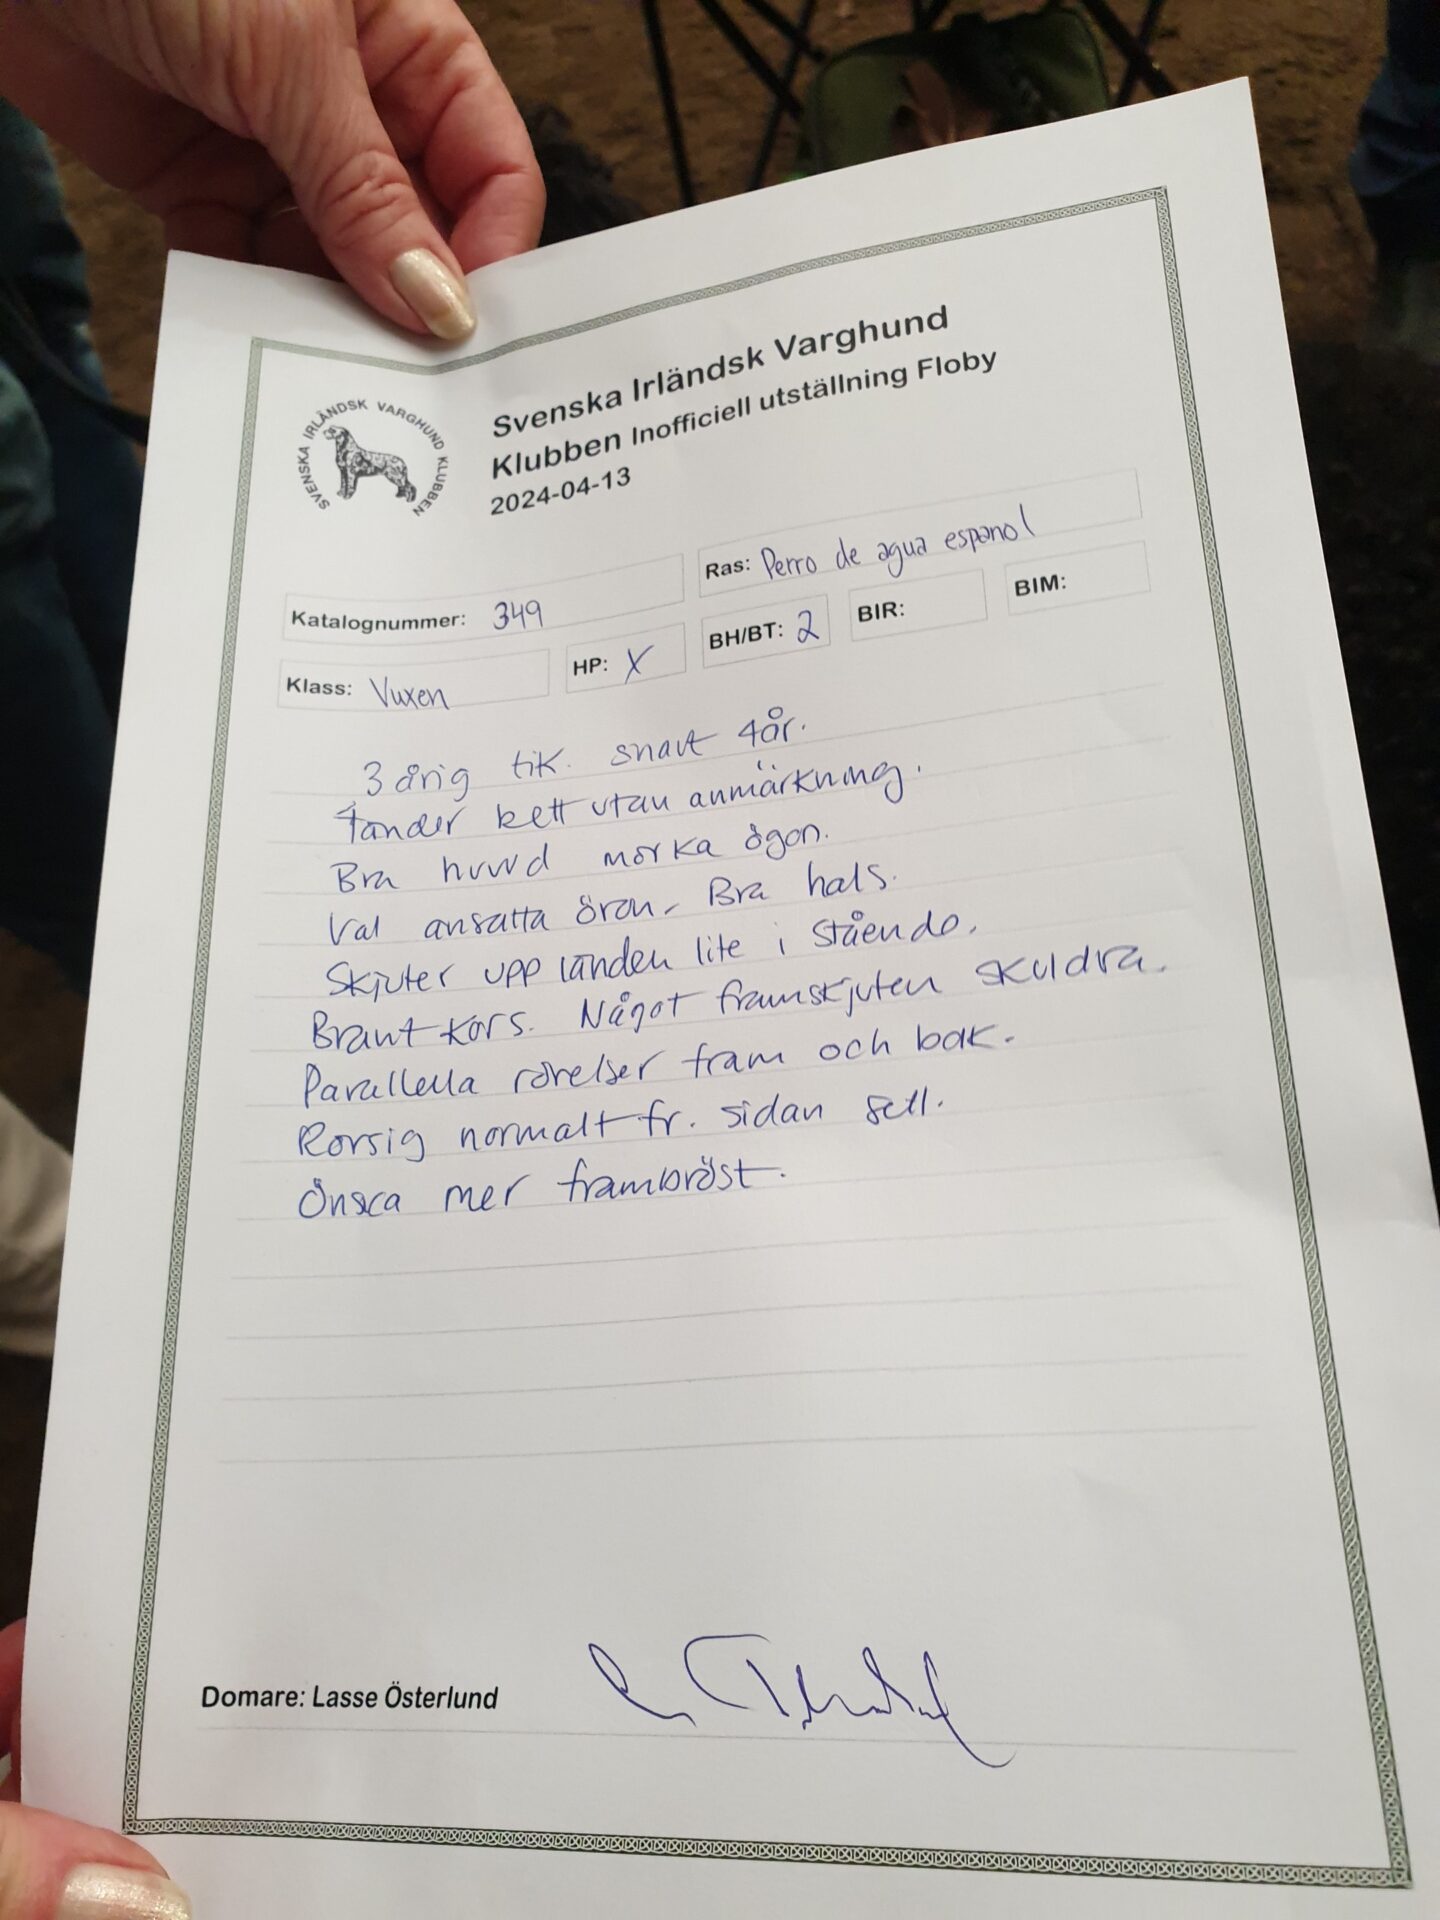 SVENSKA IRLÄNDSK VARGHUND KLUBBEN
Svenska Irländsk Varghund
Klubben Inofficiell utställning Floby
2024-04-13
Katalognummer: 349
Ras: Perro de agua espanol
Klass: Vuxen
HP: X
BH/BT: 2
BIR:
BIM:
3 årig tik. snart 4år.
Tänder bett utan anmärkning.
Bra huvud mörka ögon.
Väl ansatta öron. Bra hals.
Skjuter upp länden lite i stående.
Brant kors. Något framskjuten skuldra.
Parallella rörelser fram och bak.
Rörsig normalt fr. sidan sett.
Önska mer frambröst.
Domare: Lasse Österlund